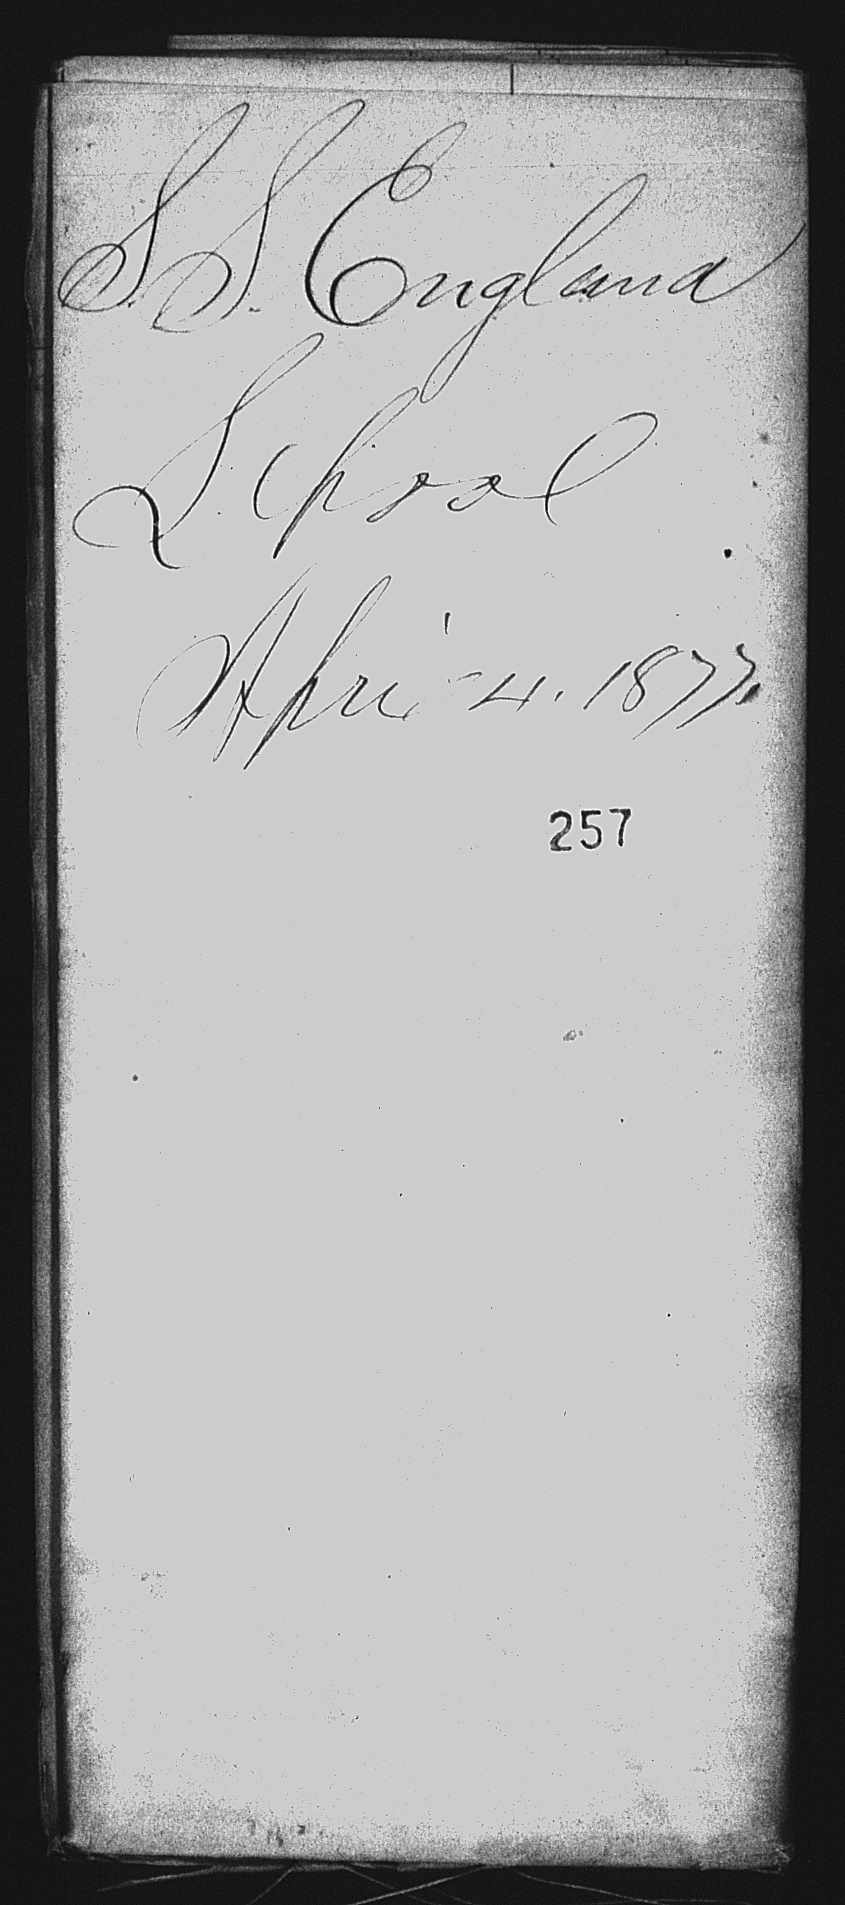 S. S. England
School
April 4. 1877.
257